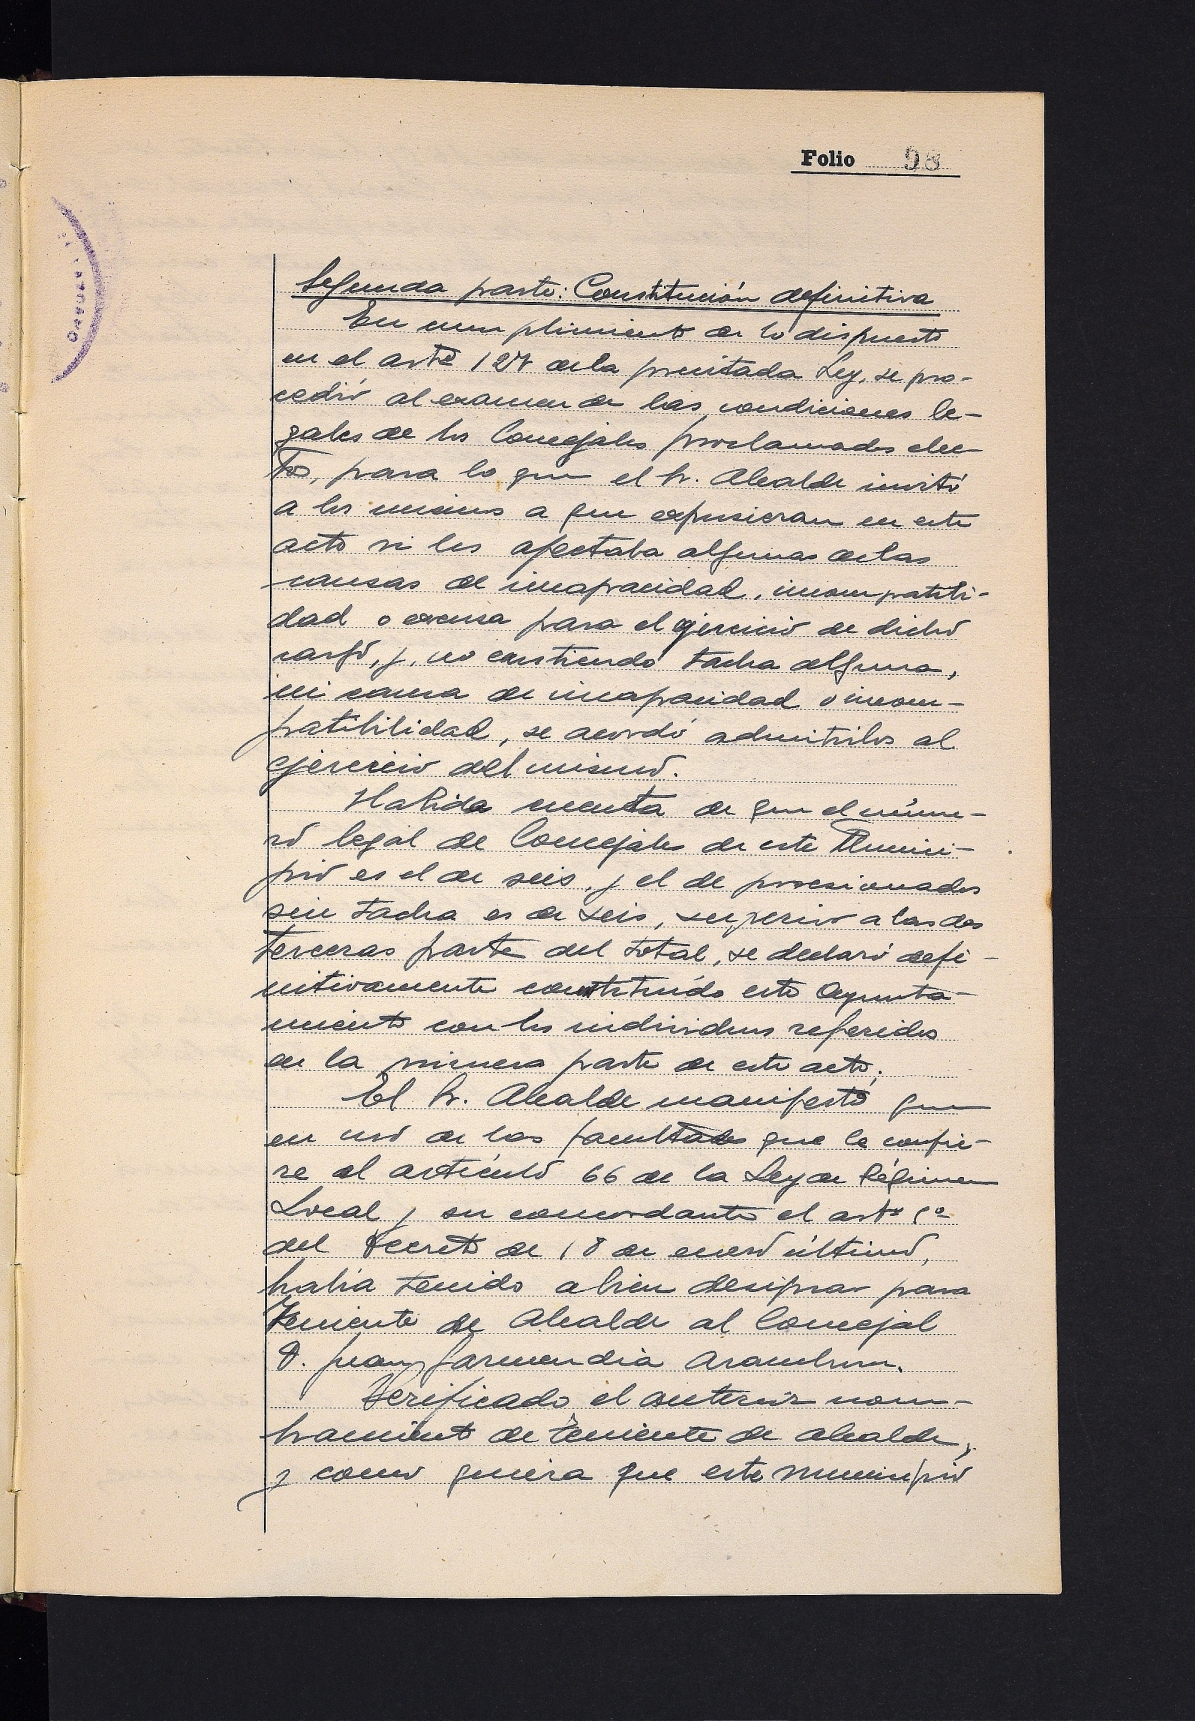 Folio 98
Segunda parte: Constitución definitiva
En cumplimiento de lo dispuesto
en el artº 127 de la precitada Ley, se pro-
cedió al examen de las condiciones le-
gales de los Concejales proclamados elec-
tos, para lo que el Sr. Alcalde invitó
a los mismos a que expusieran en este
acto si les afectaba algunas de las
causas de incapacidad, incompatibi-
dad o excusa para el ejercicio de dicho
cargo, y, no existiendo tacha alguna,
ni causa de incapacidad o incom-
patibilidad, se acordó admitirlos al
ejercicio del mismo.
Habida cuenta de que el núme-
ro legal de Concejales de este Munici-
pio es el de seis, y el de posesionados
sin tacha es de seis, superior a las dos
terceras parte del total, se declaró defi-
nitivamente constituído este Ayunta-
miento con los individuos referidos
en la primera parte de este acto.
El Sr. Alcalde manifestó que
en uso de las facultades que le confie-
re el artículo 66 de la Ley de Régimen
Local y su concordante el artº 1º
del Decreto de 18 de enero último,
había tenido a bien designar para
Teniente de Alcalde al Concejal
D. Juan Garmendia Aramburu.
Verificado el anterior nom-
bramiento de teniente de alcalde,
y como quiera que este municipio